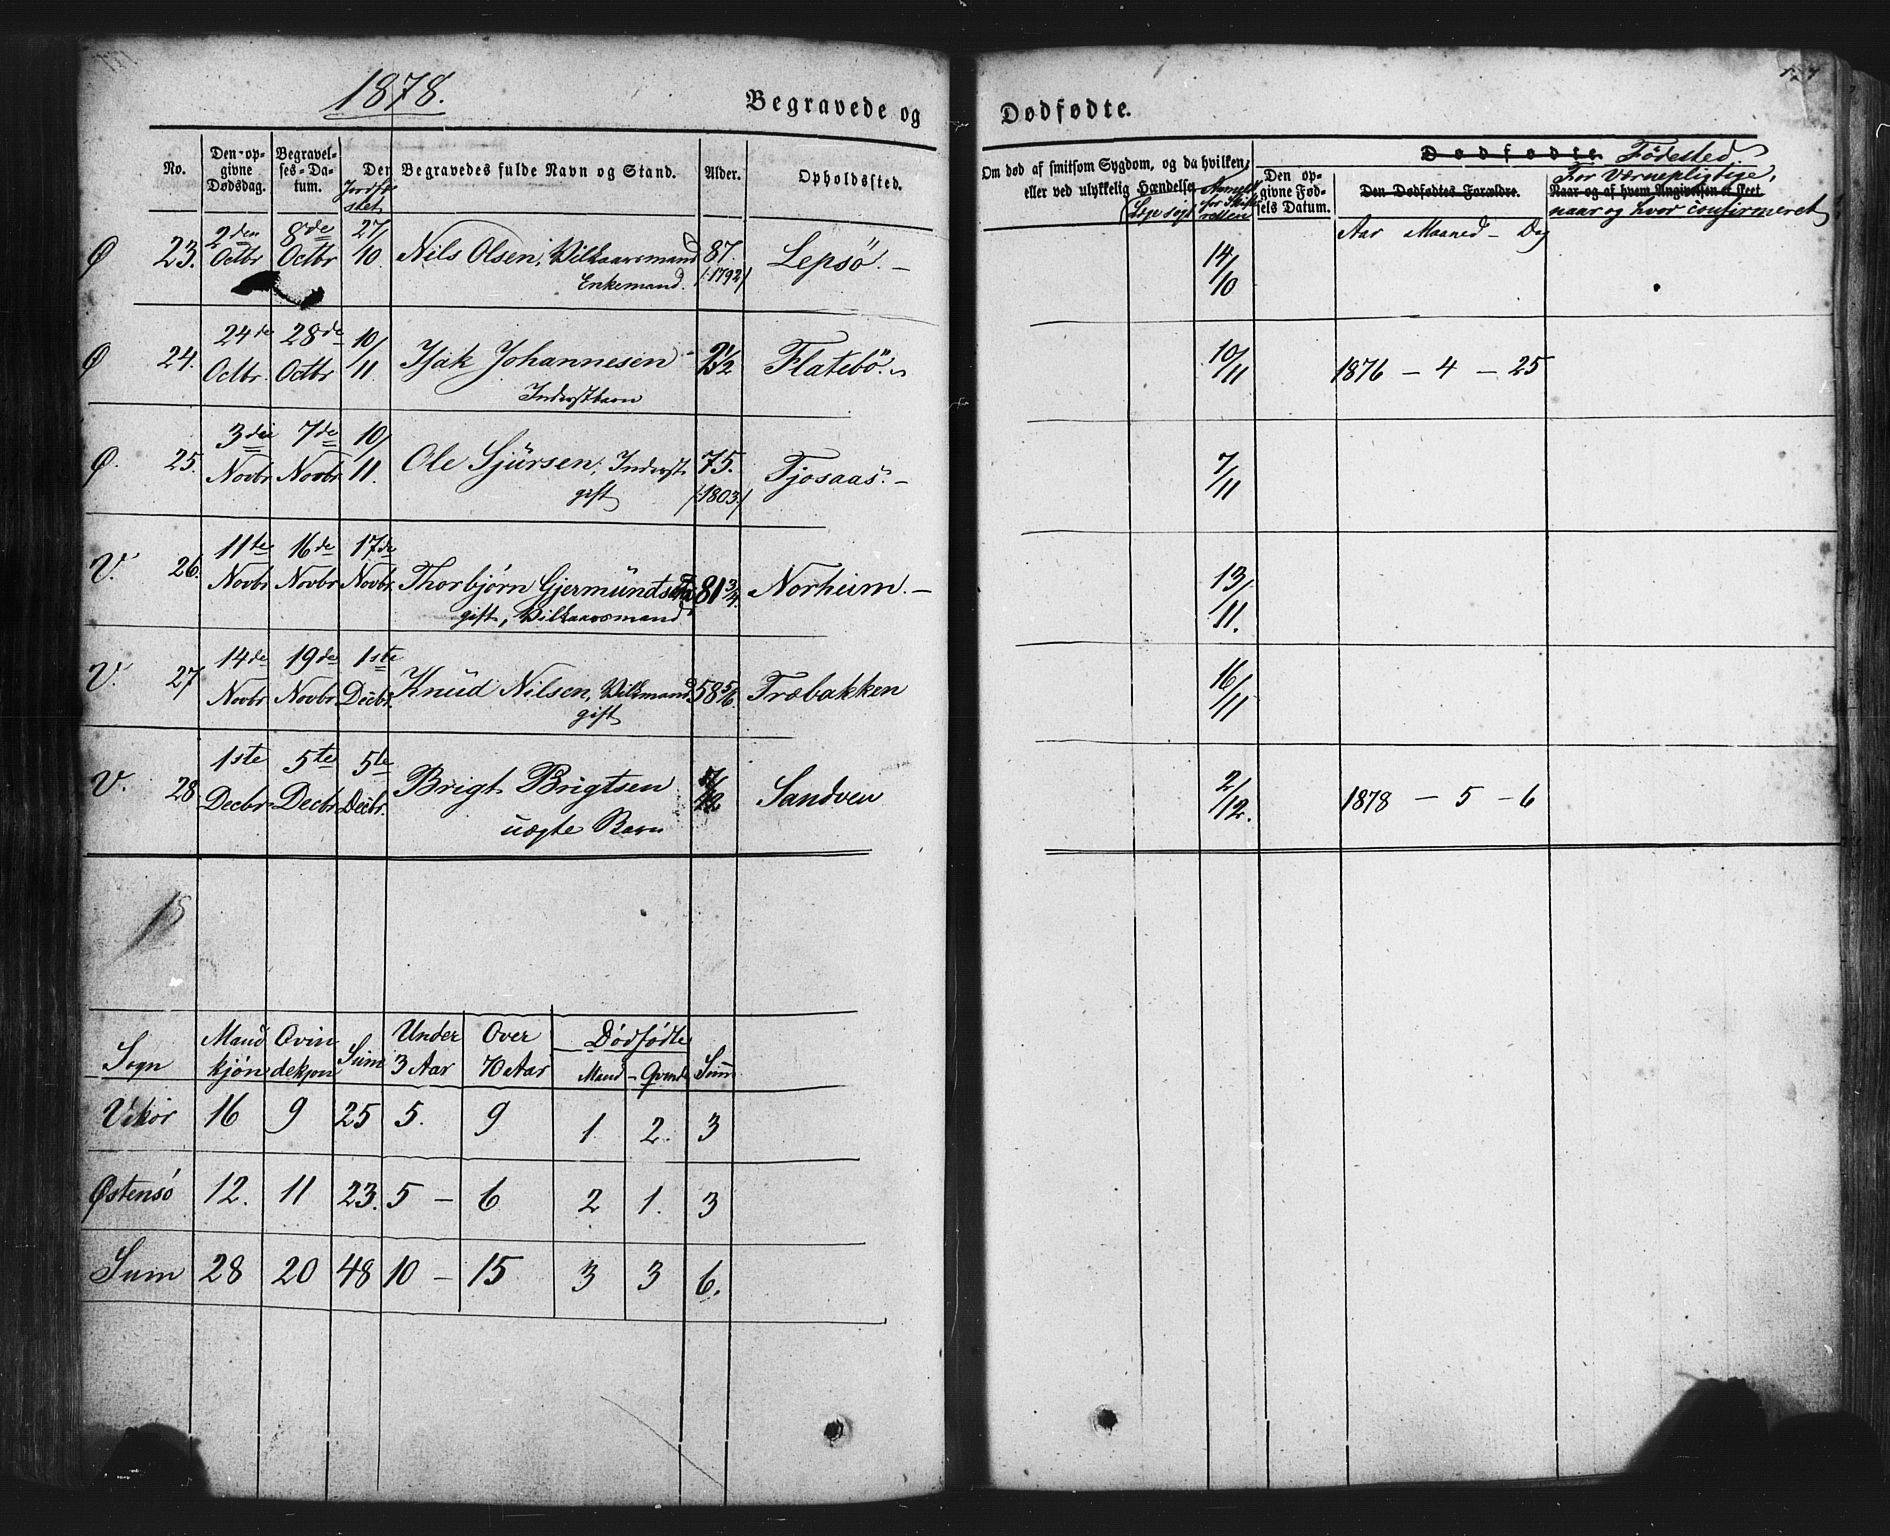 1878.
Begravede og
No.
Den opgivne Dødsdag.
Begravelses-Datum.
Jordfæstet
Den Begravedes fulde Navn og Stand.
Alder.
Opholdssted.
Ø 23. 2den Octbr 8de Octbr 27/10. Nils Olsen, Vilkaarsmand 87. Lepsö. –
Enkemand. /:1792/
Ø 24. 24de Octbr. 28de Octbr 10/11. Isak Johannesen 2 1/2 Flatebö.
Inderstbarn
Ø. 25. 3die Novbr 7de Novbr. 10/11. Ole Sjursen, Inderst. 75. Tjosaas. –
gift /:1803:/
V. 26. 11te Novbr 16de Novbr 17de Novbr. Thorbjørn Gjermundsen 81 3/4. Norheim. –
gift, Vilkaarsmand
V. 27 14de Novbr 19de Novbr 1ste Decbr. Knud Nilsen, Vilkmand 58 5/6. Træbakken
gift
V. 28 1ste Decbr 5te Decbr 5te Decbr. Brigt Brigtsen 7/12 Sandven
uægte Barn
15
Sogn Mandkjøn Qvindekjøn Sum Under 3 Aar Over 70 Aar Dödfödte Sum
Mand – Qvinde
Vikör 16 9 25 5. 9 1. 2. 3
Østensö 12. 11 23. 5 – 6 2 1. 3
Sum 28 20 48 10 – 15 3 3 6.
Dødfødte.
Om død af smitsom Sygdom, og da hvilken;
eller ved ulykkelig Hændelse
Lægesøgt
Anmeldt for Skifteretten
Den opgivne Fødsels Datum.
Dødfødte. Födested
Den Dødfødtes Forældre.
For Værnepligtige,
Naar og af hvem Angivelsen er skeet
naar og hvor confirmeret
Aar Maaned – Dag
14/10
10/11 1876 – 4 – 25
7/11
13/11.
16/11
2/12. 1878 – 5 – 6